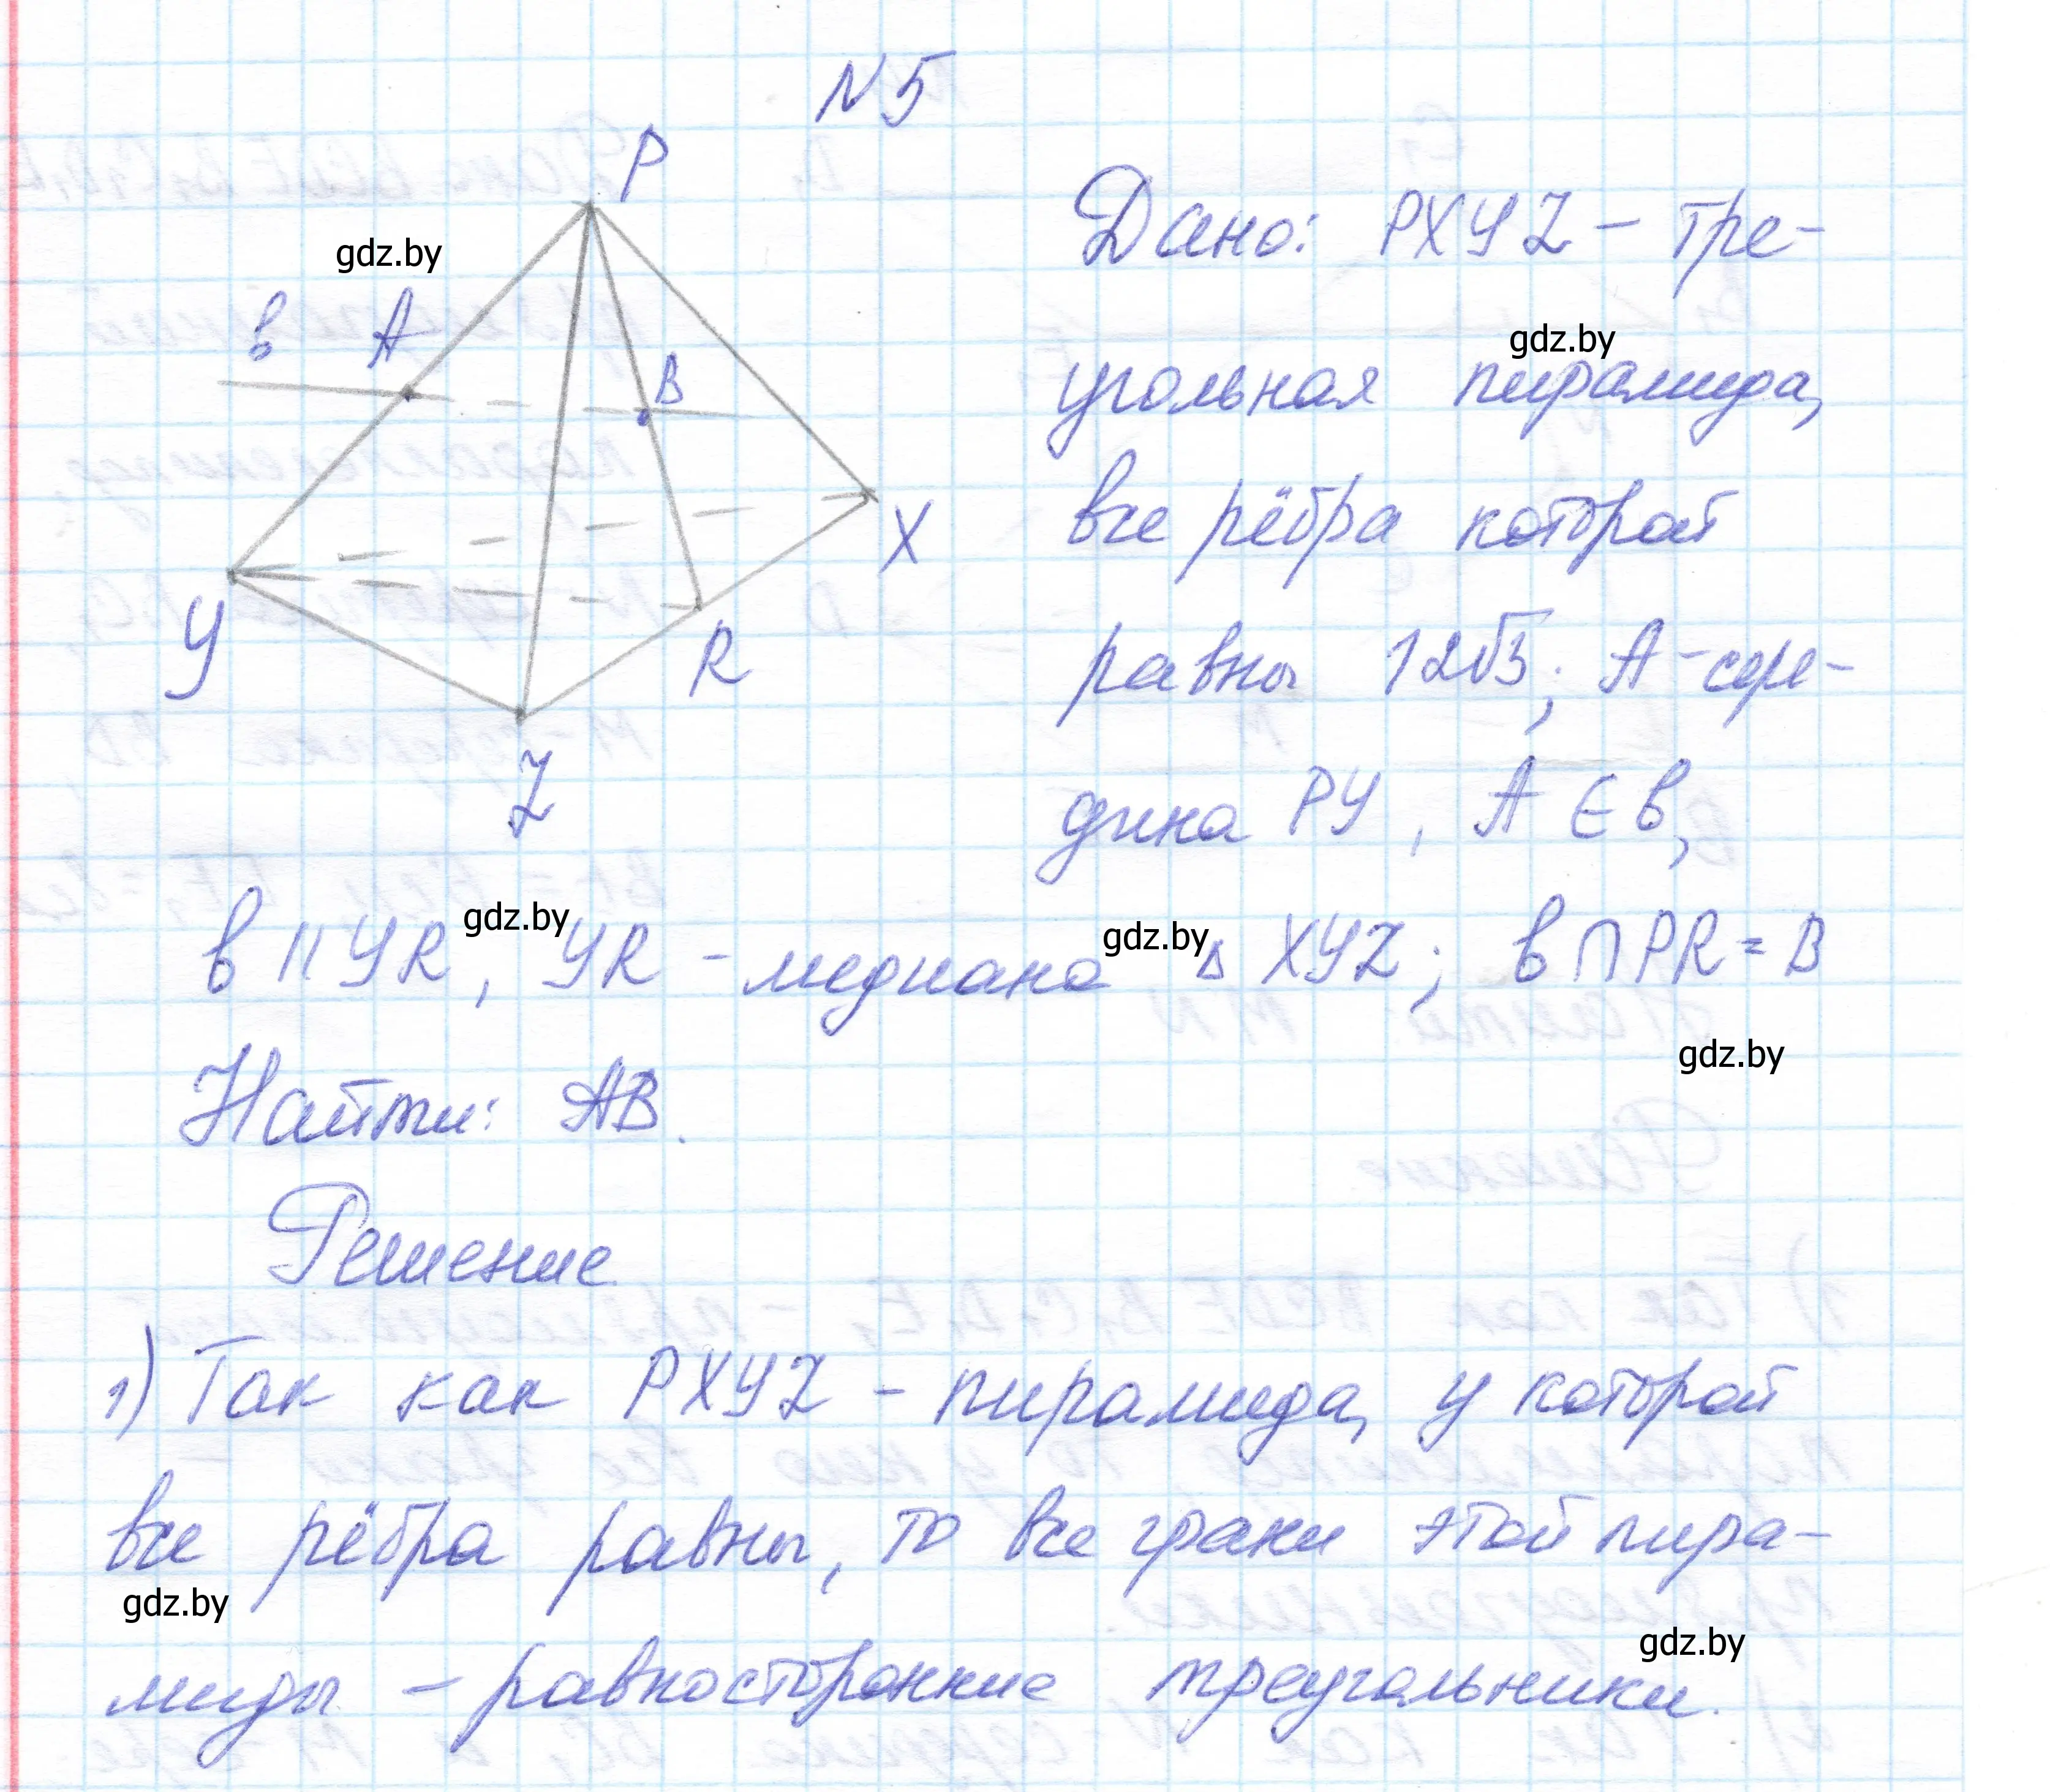 N5
P
Дано: PXYZ - тре-
gdz.by
в A
gdz.by
B
угольная пирамида,
X
все рёбра которой
Y
R
равны 12√3; A - сере-
Z
дина PY, A ∈ в,
gdz.by
gdz.by
в || YR, YR - медиана △ XYZ; в ∩ PR = B
gdz.by
Найти: AB.
Решение
1) Так как PXYZ - пирамида, у которой
все рёбра равны, то все грани этой пира-
gdz.by
gdz.by
миды - равносторонние треугольники.